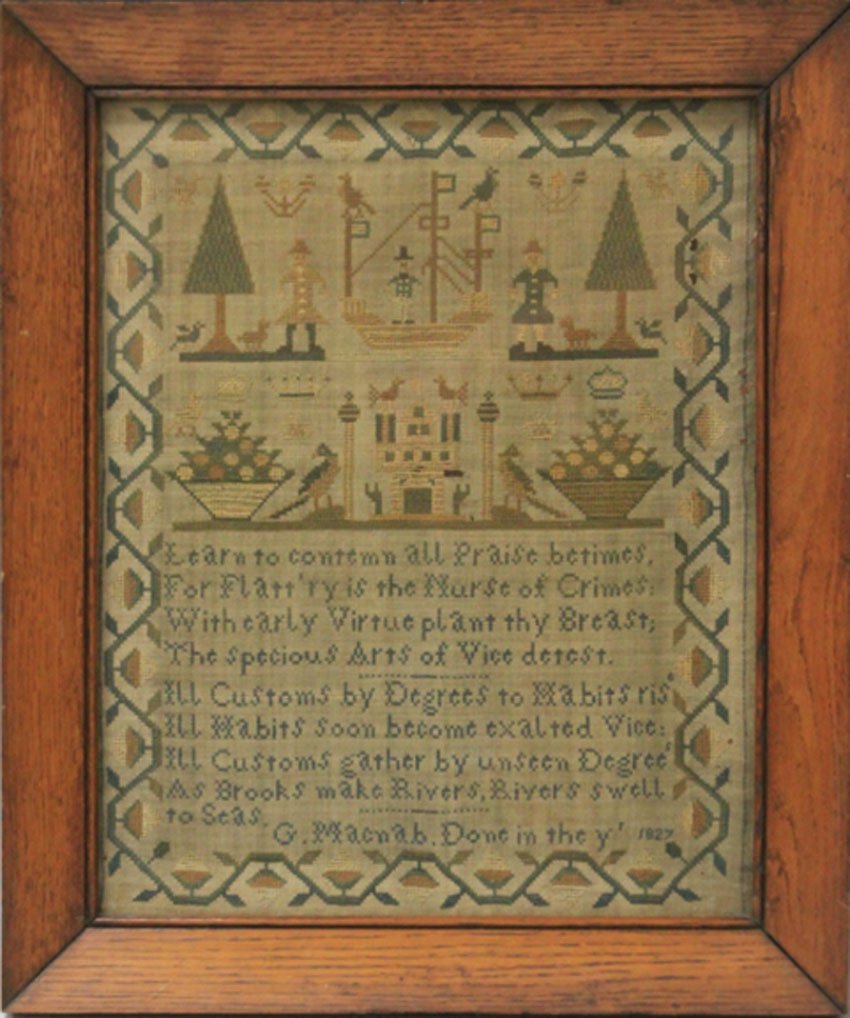 Learn to contemn all Praise betimes,
For Flatt'ry is the Nurse of Crimes:
With early Virtue plant thy Breast;
The specious Arts of Vice detest.
Ill Customs by Degrees to Habits rise
Ill Habits soon become exalted Vice:
Ill Customs gather by unseen Degrees
As Brooks make Rivers, Rivers swell
to Seas.
G. Macnab. Done in the yr 1827